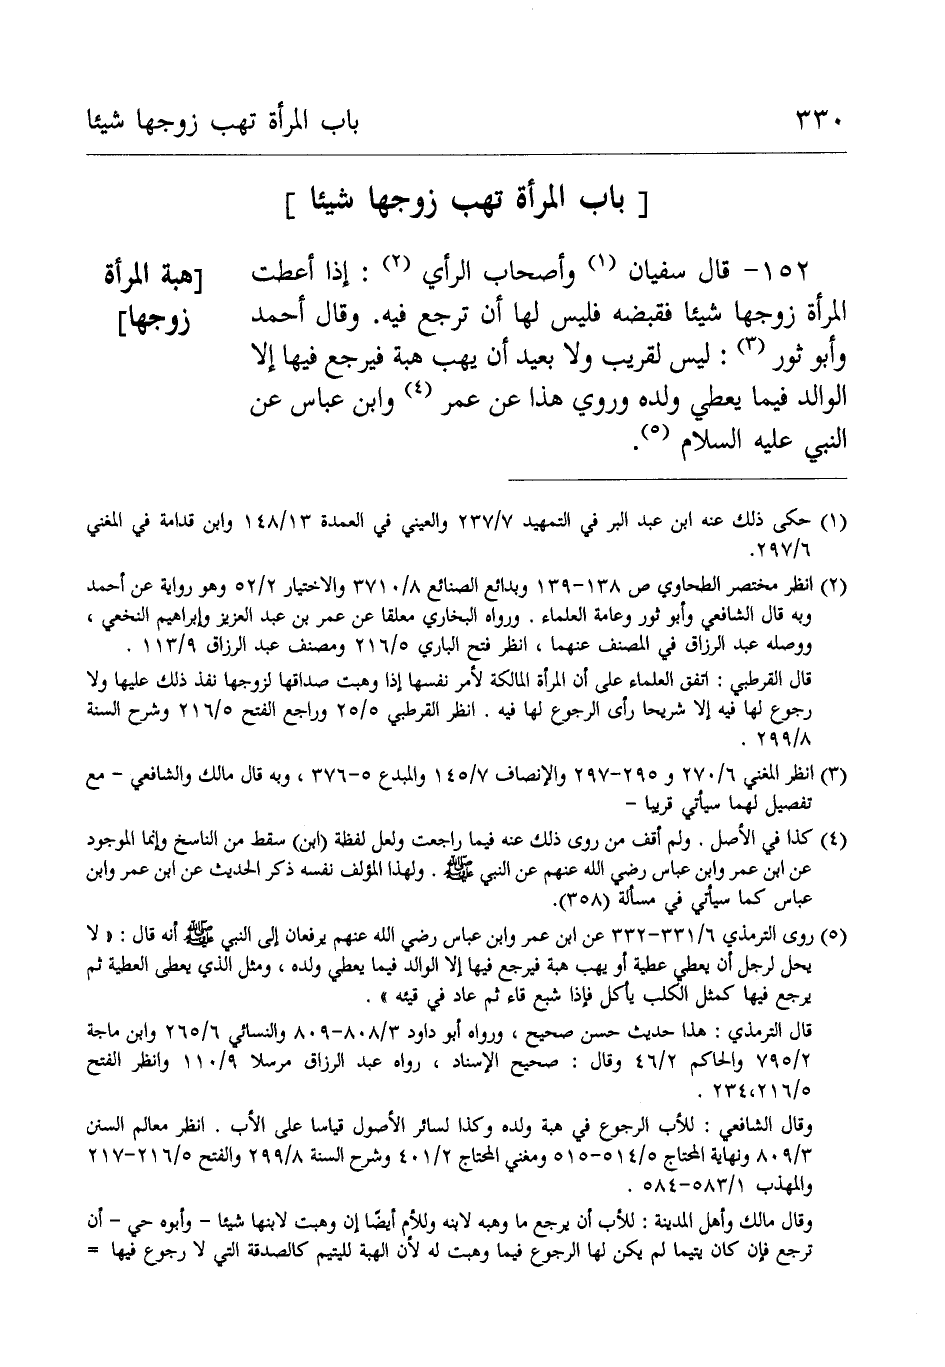 ٣٣٠
باب المرأة تهب زوجها شيئا
[ باب المرأة تهب زوجها شيئا ]
١٥٢- قال سفيان (١) وأصحاب الرأي (٢) : إذا أعطت
المرأة زوجها شيئا فقبضه فليس لها أن ترجع فيه. وقال أحمد
وأبو ثور (٣) : ليس لقريب ولا بعيد أن يهب هبة فيرجع فيها إلا
الوالد فيما يعطي ولده وروي هذا عن عمر (٤) وابن عباس عن
النبي عليه السلام (٥).
[هبة المرأة
زوجها]
(١) حكى ذلك عنه ابن عبد البر في التمهيد ٢٣٧/٧ والعيني في العمدة ١٤٨/١٣ وابن قدامة في المغني
٢٩٧/٦.
(٢) انظر مختصر الطحاوي ص ١٣٨-١٣٩ وبدائع الصنائع ٣٧١٠/٨ والاختيار ٥٢/٢ وهو رواية عن أحمد
وبه قال الشافعي وأبو ثور وعامة العلماء . ورواه البخاري معلقا عن عمر بن عبد العزيز وإبراهيم النخعي ،
ووصله عبد الرزاق في المصنف عنهما ، انظر فتح الباري ٢١٦/٥ ومصنف عبد الرزاق ١١٣/٩ .
قال القرطبي : اتفق العلماء على أن المرأة المالكة لأمر نفسها إذا وهبت صداقها لزوجها نفذ ذلك عليها ولا
رجوع لها فيه إلا شريحا رأى الرجوع لها فيه . انظر القرطبي ٢٥/٥ وراجع الفتح ٢١٦/٥ وشرح السنة
٢٩٩/٨ .
(٣) انظر المغني ٢٧٠/٦ و ٢٩٥-٢٩٧ والإنصاف ١٤٥/٧ والمبدع ٥-٣٧٦ ، وبه قال مالك والشافعي - مع
تفصيل لهما سيأتي قريبا -
(٤) كذا في الأصل . ولم أقف من روى ذلك عنه فيما راجعت ولعل لفظة (ابن) سقط من الناسخ وإنما الموجود
عن ابن عمر وابن عباس رضي الله عنهم عن النبي ﷺ . ولهذا المؤلف نفسه ذكر الحديث عن ابن عمر وابن
عباس كما سيأتي في مسألة (٣٥٨).
(٥) روى الترمذي ٣٣١/٦-٣٣٢ عن ابن عمر وابن عباس رضي الله عنهم يرفعان إلى النبي ﷺ أنه قال : « لا
يحل لرجل أن يعطي عطية أو يهب هبة فيرجع فيها إلا الوالد فيما يعطي ولده ، ومثل الذي يعطى العطية ثم
يرجع فيها كمثل الكلب يأكل فإذا شبع قاء ثم عاد في قيئه » .
قال الترمذي : هذا حديث حسن صحيح ، ورواه أبو داود ٨٠٨/٣-٨٠٩ والنسائي ٢٦٥/٦ وابن ماجة
٧٩٥/٢ والحاكم ٤٦/٢ وقال : صحيح الإسناد ، رواه عبد الرزاق مرسلا ١١٠/٩ وانظر الفتح
٢٣٤،٢١٦/٥ .
وقال الشافعي : للأب الرجوع في هبة ولده وكذا لسائر الأصول قياسا على الأب . انظر معالم السنن
٨٠٩/٣ ونهاية المحتاج ٥١٤/٥-٥١٥ ومغني المحتاج ٤٠١/٢ وشرح السنة ٢٩٩/٨ والفتح ٢١٦/٥-٢١٧
والمهذب ٥٨٣/١-٥٨٤ .
وقال مالك وأهل المدينة : للأب أن يرجع ما وهبه لابنه وللأم أيضًا إن وهبت لابنها شيئا - وأبوه حي - أن
ترجع فإن كان يتيما لم يكن لها الرجوع فيما وهبت له لأن الهبة لليتيم كالصدقة التي لا رجوع فيها =